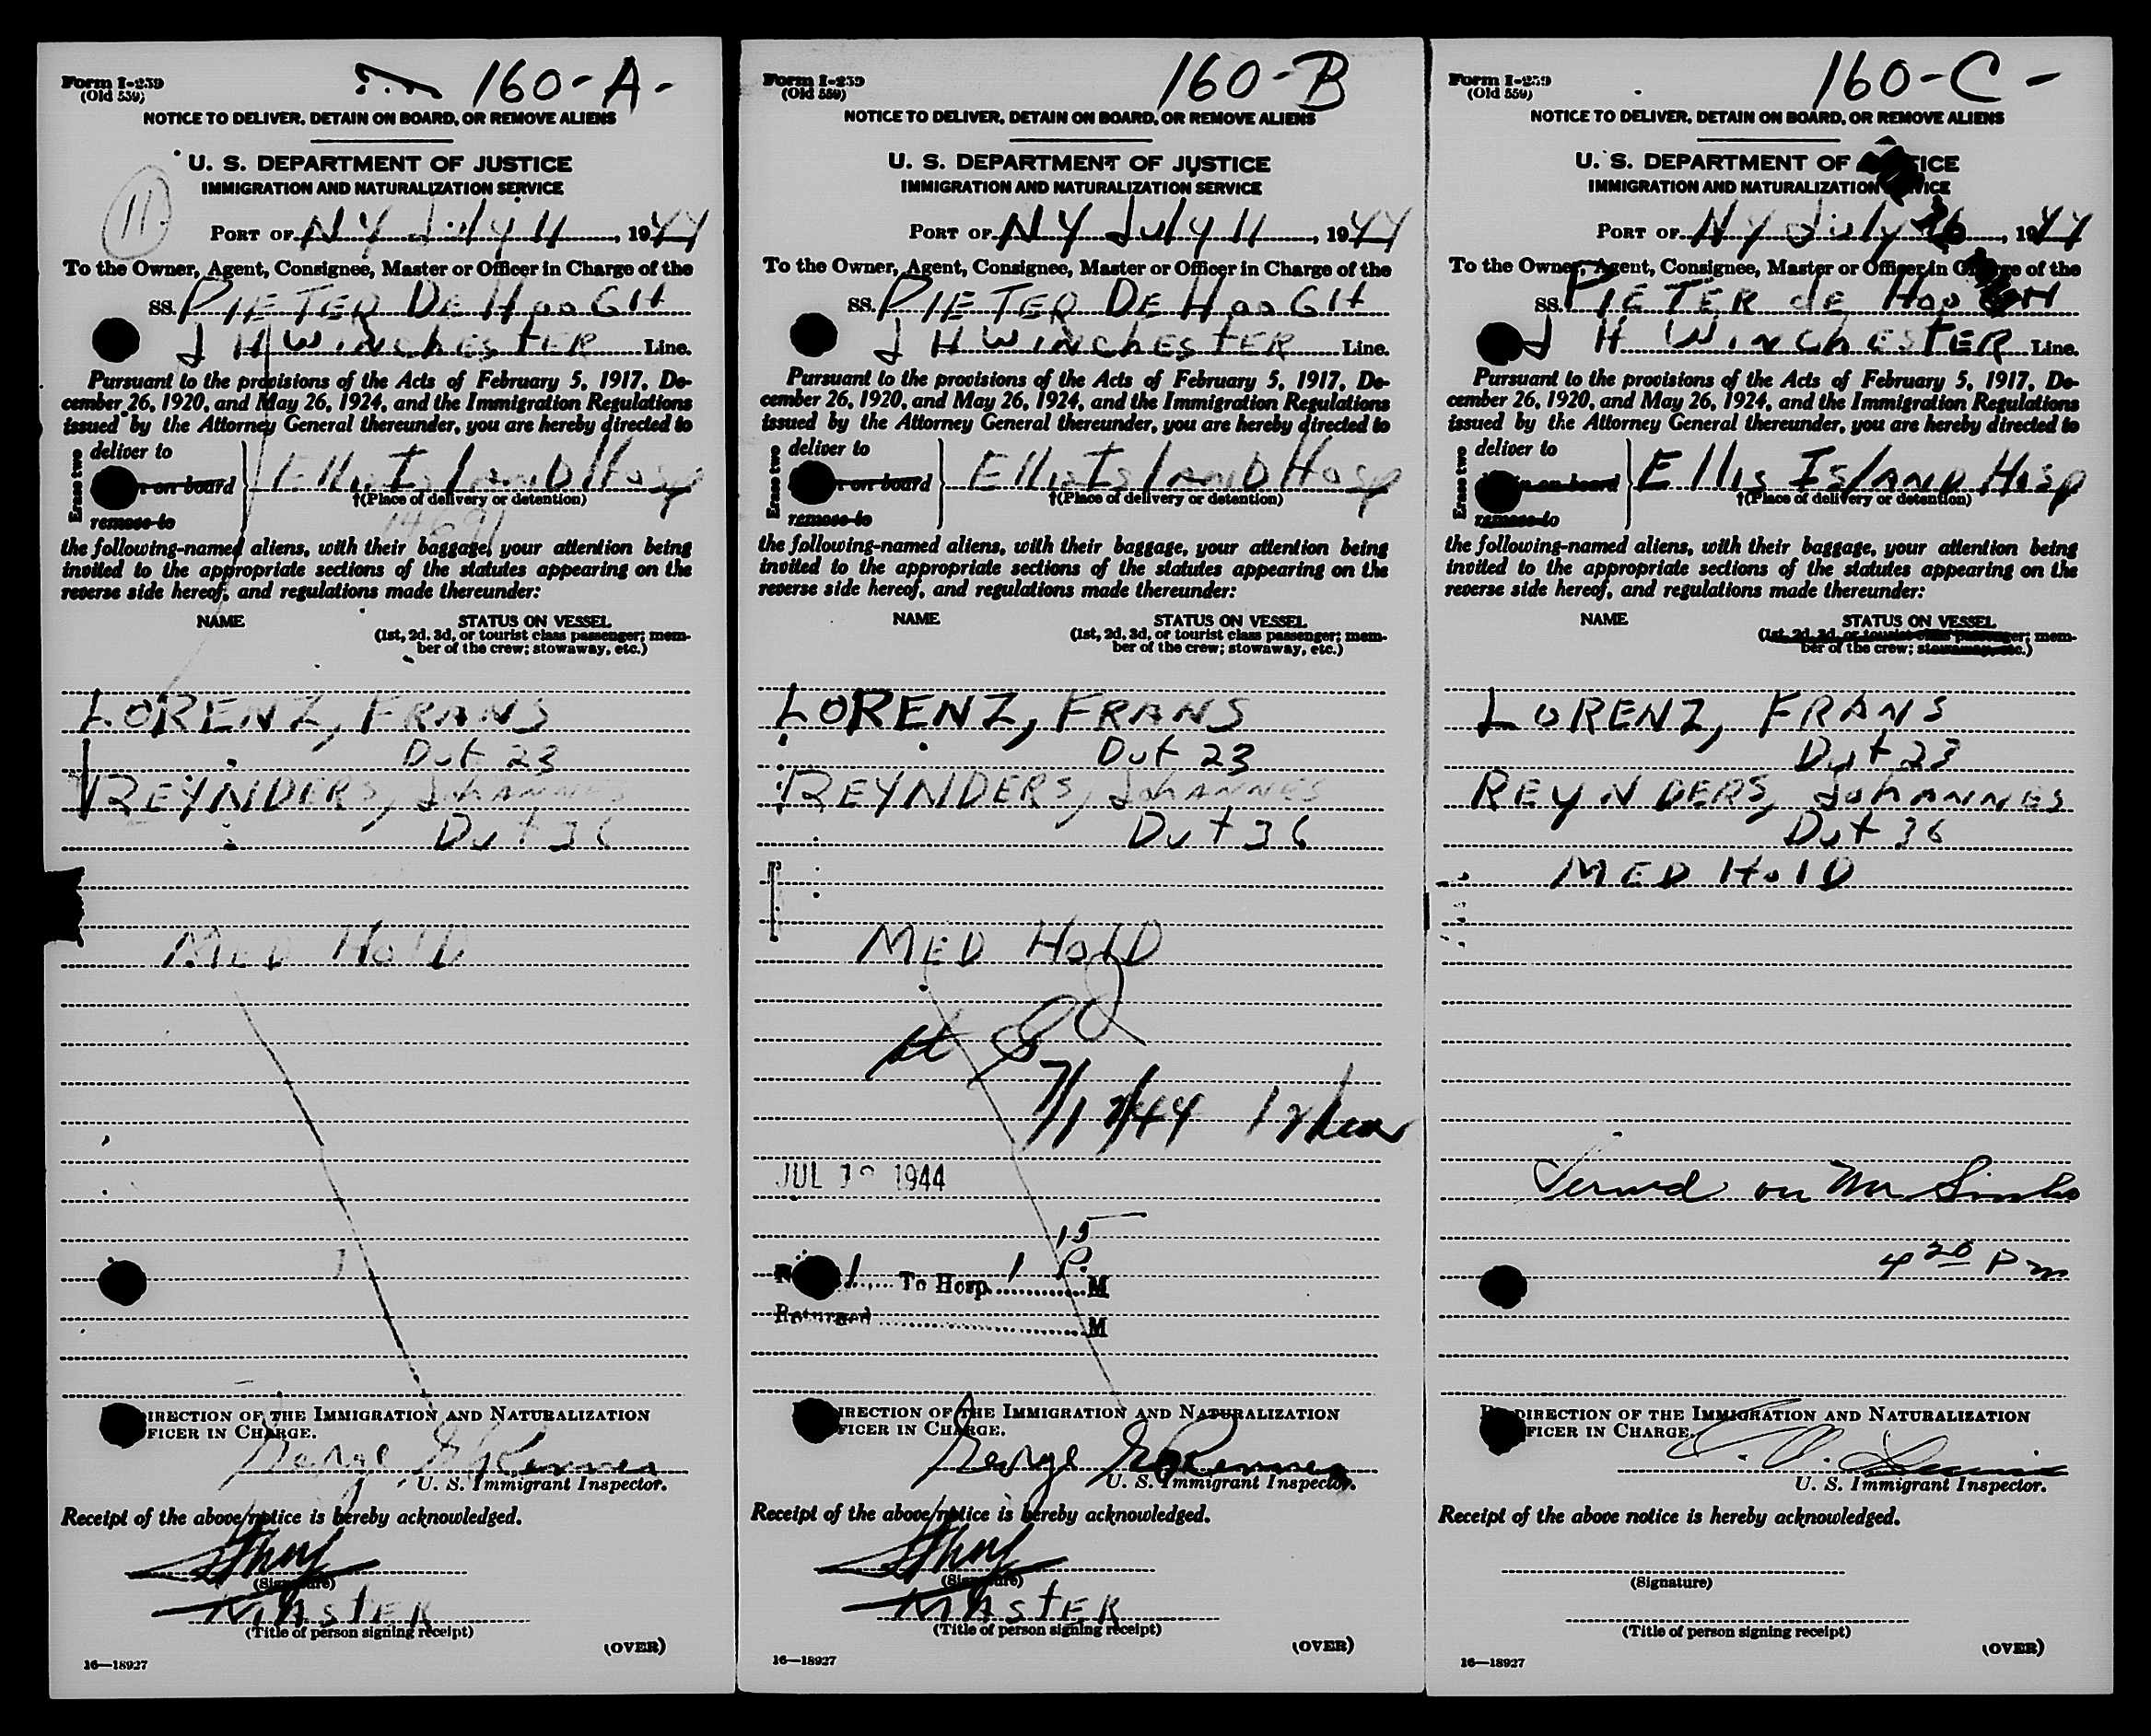 Form I-259
(Old 559)
160-A-
NOTICE TO DELIVER, DETAIN ON BOARD, OR REMOVE ALIENS
U. S. DEPARTMENT OF JUSTICE
IMMIGRATION AND NATURALIZATION SERVICE
11
PORT OF NY July 11, 1944
To the Owner, Agent, Consignee, Master or Officer in Charge of the
SS. PIETER DE HooGH
J H WINchESTER Line.
Pursuant to the provisions of the Acts of February 5, 1917, De-
cember 26, 1920, and May 26, 1924, and the Immigration Regulations
issued by the Attorney General thereunder, you are hereby directed to
Erase two
deliver to
on board
Ellis IslAND Hosp
†(Place of delivery or detention)
remove to
the following-named aliens, with their baggage, your attention being
invited to the appropriate sections of the statutes appearing on the
reverse side hereof, and regulations made thereunder:
NAME
STATUS ON VESSEL
(1st, 2d, 3d, or tourist class passenger; mem-
ber of the crew; stowaway, etc.)
LORENZ, FRANS
Dut 23
REYNDERS, JohANNES
Dut 36
MED HolD
IRECTION OF THE IMMIGRATION AND NATURALIZATION
FICER IN CHARGE.
George
U. S. Immigrant Inspector.
Receipt of the above notice is hereby acknowledged.
(Signature)
MAStER
(Title of person signing receipt)
(OVER)
16—18927
Form I-259
(Old 559)
160-B
NOTICE TO DELIVER, DETAIN ON BOARD, OR REMOVE ALIENS
U. S. DEPARTMENT OF JUSTICE
IMMIGRATION AND NATURALIZATION SERVICE
PORT OF NY July 11, 1944
To the Owner, Agent, Consignee, Master or Officer in Charge of the
SS. PIETER DE HooGH
J H WINchESTER Line.
Pursuant to the provisions of the Acts of February 5, 1917, De-
cember 26, 1920, and May 26, 1924, and the Immigration Regulations
issued by the Attorney General thereunder, you are hereby directed to
Erase two
deliver to
on board
Ellis IslAND Hosp
†(Place of delivery or detention)
remove to
the following-named aliens, with their baggage, your attention being
invited to the appropriate sections of the statutes appearing on the
reverse side hereof, and regulations made thereunder:
NAME
STATUS ON VESSEL
(1st, 2d, 3d, or tourist class passenger; mem-
ber of the crew; stowaway, etc.)
LORENZ, FRANS
Dut 23
REYNDERS, JohANNES
Dut 36
MED HolD
7/12/44
JUL 1 1944
15
1 To Hosp. 1 P. M
Returned M
IRECTION OF THE IMMIGRATION AND NATURALIZATION
FICER IN CHARGE.
George
U. S. Immigrant Inspector.
Receipt of the above notice is hereby acknowledged.
(Signature)
MAStER
(Title of person signing receipt)
(OVER)
16—18927
Form I-259
(Old 559)
160-C-
NOTICE TO DELIVER, DETAIN ON BOARD, OR REMOVE ALIENS
U. S. DEPARTMENT OF ICE
IMMIGRATION AND NATURALIZATION VICE
PORT OF NY July, 1944
To the Owner, Agent, Consignee, Master or Officer in Charge of the
SS. PIETER dE Hoo H
J H WINchESTER Line.
Pursuant to the provisions of the Acts of February 5, 1917, De-
cember 26, 1920, and May 26, 1924, and the Immigration Regulations
issued by the Attorney General thereunder, you are hereby directed to
Erase two
deliver to
on board
Ellis IslAND Hosp
†(Place of delivery or detention)
remove to
the following-named aliens, with their baggage, your attention being
invited to the appropriate sections of the statutes appearing on the
reverse side hereof, and regulations made thereunder:
NAME
STATUS ON VESSEL
(1st, 2d, 3d, or tourist class passenger; mem-
ber of the crew; stowaway, etc.)
LORENZ, FRANS
Dut 23
REYNDERS, JohANNES
Dut 36
MED HolD
Served on Mr
4 20 Pm
DIRECTION OF THE IMMIGRATION AND NATURALIZATION
FICER IN CHARGE.
U. S. Immigrant Inspector.
Receipt of the above notice is hereby acknowledged.
(Signature)
(Title of person signing receipt)
(OVER)
16—18927